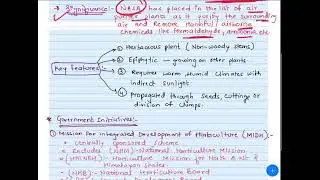 * Significance:- NASA has placed in the list of air
purifier plants as it purify the surrounding
air and remove harmful airborne
chemicals like formaldehyde, ammonia etc.
Key features
① Herbaceous plant (Nonwoody stems)
② Epiphytic – growing on other plants
③ Requires warm humid climates with
indirect sunlight
④ Propagated through seeds, cuttings
or division of clumps.
* Government Initiatives:-
① Mission for Integrated Development of Horticulture (MIDH)
→ Centrally Sponsored Scheme
→ Includes (NHM)-National Horticulture Mission
(HMNEH)- Horticulture Mission for North East &
Himalayan States
(NHB)- National Horticulture Board